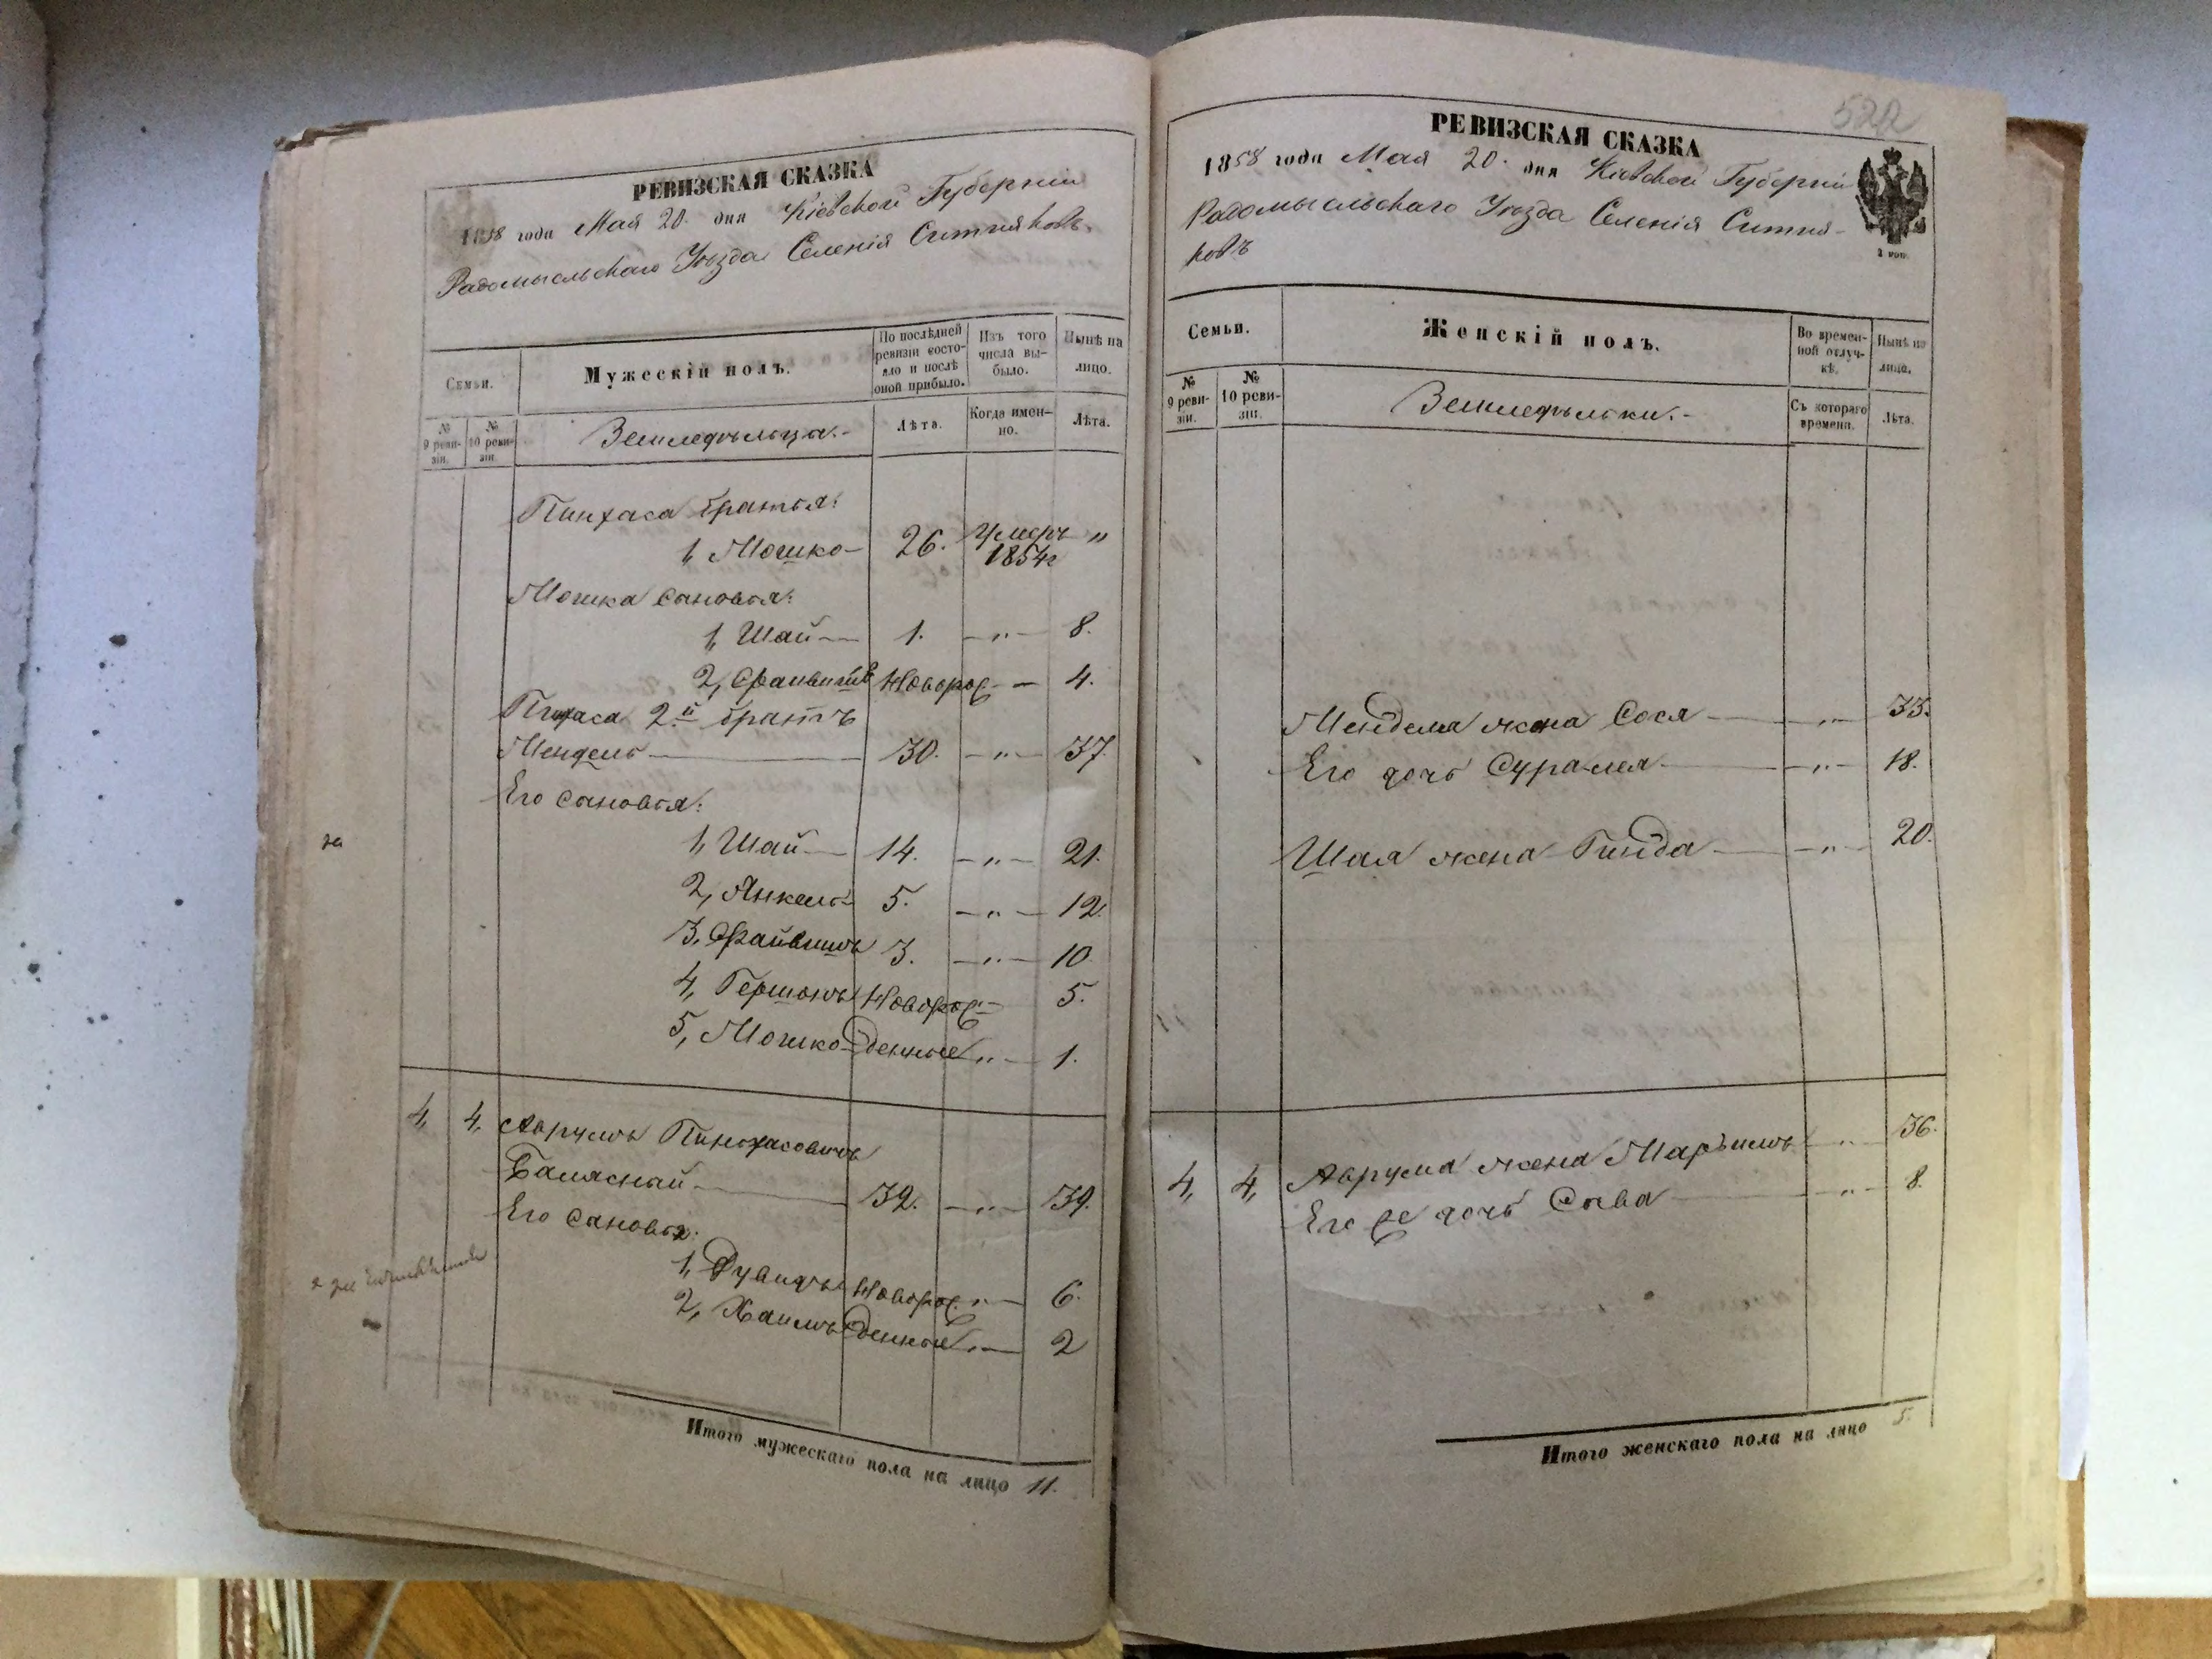 РЕВИЗСКАЯ СКАЗКА
1858 года Мая 20. дня Кіевской Губерніи
Радомысльскаго Уѣзда Селенія Ситняковъ.
Семьи.
Мужескій полъ.
По послѣдней ревизіи состояло и послѣ оной прибыло.
Изъ того числа выбыло.
Нынѣ на лицо.
№ 9 ревизіи.
№ 10 ревизіи.
Земледѣльцы.-
Лѣта.
Когда именно.
Лѣта.
Пинхаса братья:
1, Мошко 26. Умеръ 1854г „
Мошка сыновья:
1, Шай 1. — „ — 8.
2, Файвишъ Новорож — 4.
Пинхаса 2й братъ
Мендель 30. — „ — 37.
Его сыновья:
1, Шай 14. — „ — 21.
2, Янкель 5. — „ — 12.
3, Файвишъ 3. — „ — 10.
4, Гершонъ Новорож „ — 5.
5, Мошко денные „ — 1.
4, 4, Аврумъ Пинхасовичъ
Балясный 32. — „ — 39.
Его сыновья:
1, Дувидъ Новорож „ — 6.
2, Хаимъ денные „ — 2
Итого мужескаго пола на лицо 11.
522
РЕВИЗСКАЯ СКАЗКА
1858 года Мая 20. дня Кіевской Губерніи
Радомысльскаго Уѣзда Селенія Ситня-
ковъ
Семьи.
Женскій полъ.
Во временной отлучкѣ.
Нынѣ на лицо.
№ 9 ревизіи.
№ 10 ревизіи.
Земледѣльки.-
Съ котораго времени.
Лѣта.
Менделя жена Сося — „ — 33.
Его дочь Суралея — „ — 18.
Шая жена Гинда — „ — 20.
4, 4, Аврума жена Марьимъ „ 36.
Его же дочь Сыва — „ — 8.
Итого женскаго пола на лицо 5.